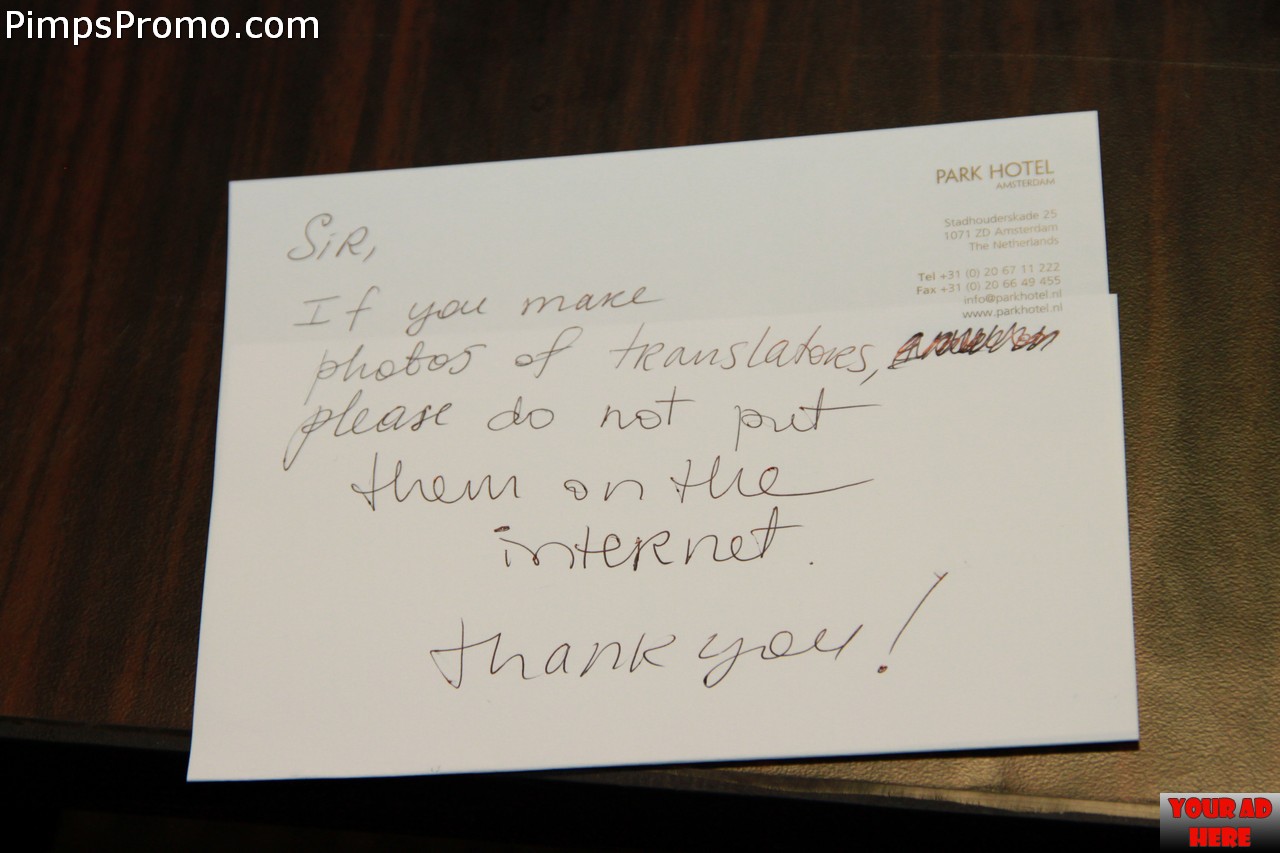 PimpsPromo.com
PARK HOTEL
AMSTERDAM
Stadhouderskade 25
1071 ZD Amsterdam
The Netherlands
Tel +31 (0) 20 67 11 222
Fax +31 (0) 20 66 49 455
info@parkhotel.nl
www.parkhotel.nl
SiR,
If you make
photos of translators,
please do not put
them on the
internet.
thank you!
YOUR AD
HERE